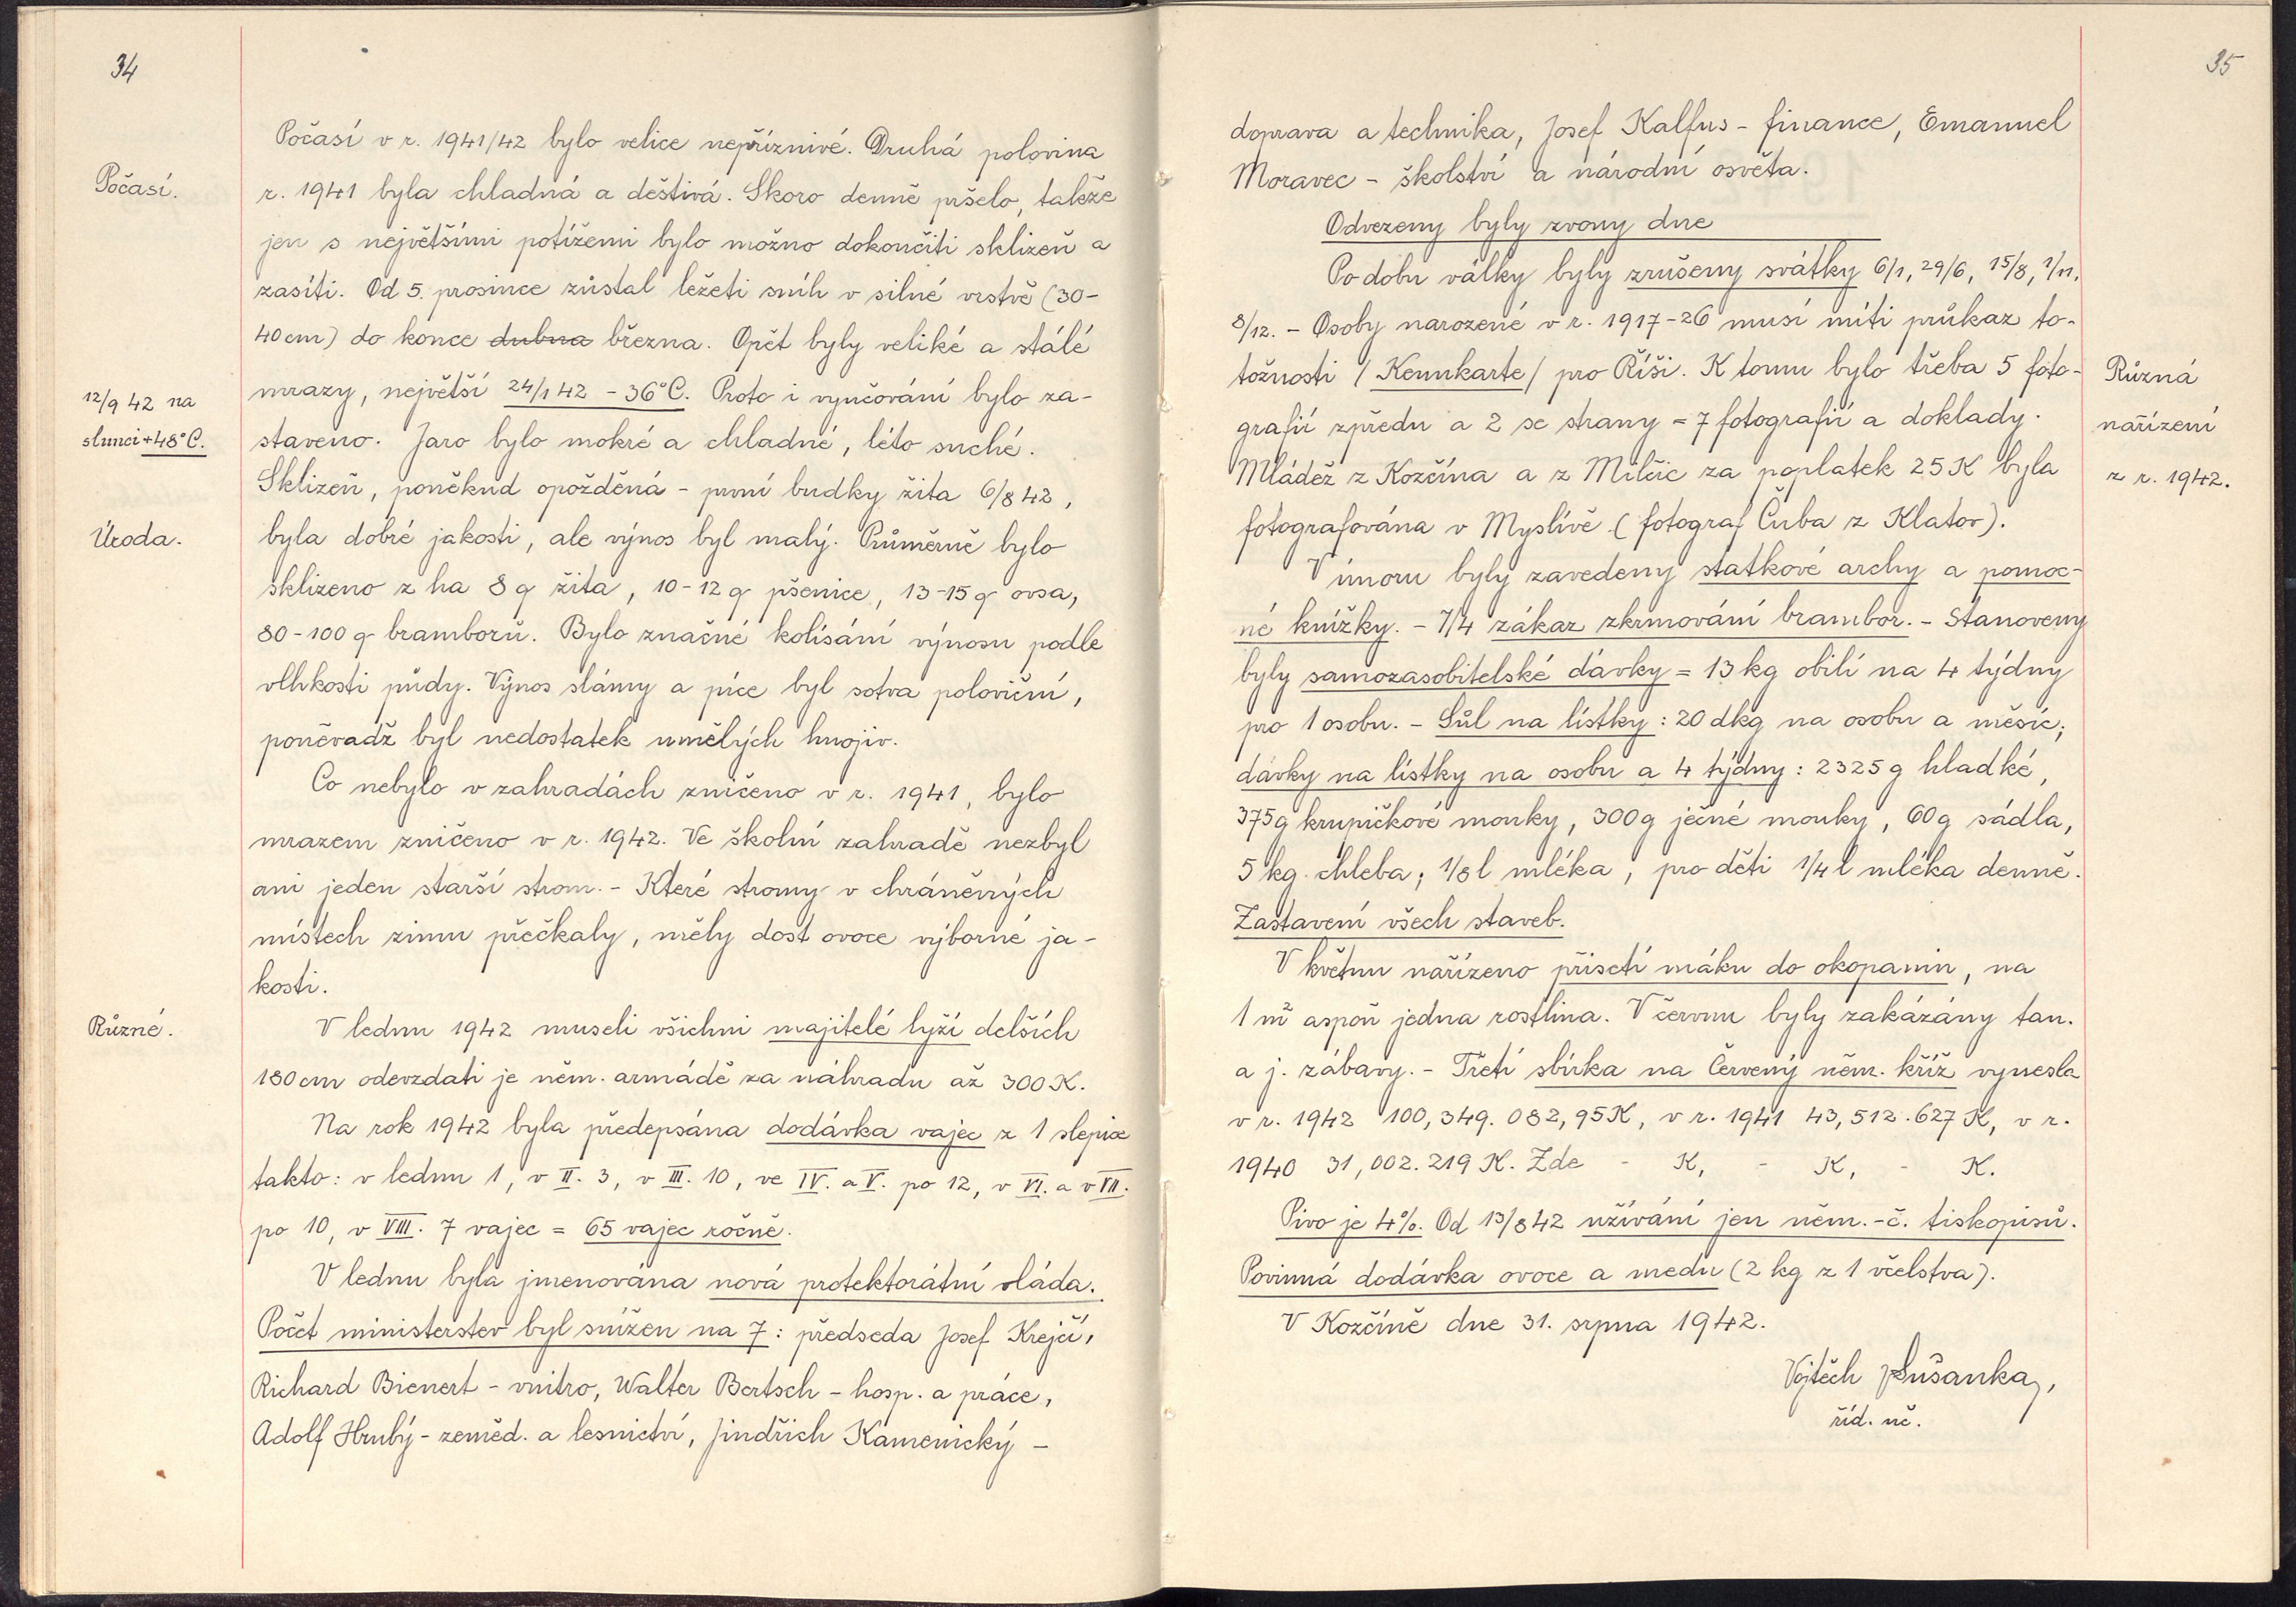 34
Počasí v r. 1941/42 bylo velice nepříznivé. Druhá polovina
Počasí.
r. 1941 byla chladná a deštivá. Skoro denně pršelo, takže
jen s největšími potížemi bylo možno dokončiti sklizeň a
zasíti. Od 5. prosince zůstal ležeti sníh v silné vrstvě (30-
40 cm) do konce dubna března. Opět byly veliké a stálé
mrazy, největší 24/1 42 - 36°C. Proto i vyučování bylo za-
12/9 42 na
slunci +48°C.
staveno. Jaro bylo mokré a chladné, léto suché.
Sklizeň, poněkud opožděná - první budky žita 6/8 42,
Úroda.
byla dobré jakosti, ale výnos byl malý. Průměrně bylo
sklizeno z ha 8 q žita, 10-12 q pšenice, 13-15 q ovsa,
80-100 q bramborů. Bylo značné kolísání výnosu podle
vlhkosti půdy. Výnos slámy a píce byl sotva poloviční,
poněvadž byl nedostatek umělých hnojiv.
Co nebylo v zahradách zničeno v r. 1941, bylo
mrazem zničeno v r. 1942. Ve školní zahradě nezbyl
ani jeden starší strom. - Které stromy v chráněných
místech zimu přečkaly, měly dost ovoce výborné ja-
kosti.
Různé.
V lednu 1942 museli všichni majitelé lyží delších
180 cm odevzdati je něm. armádě za náhradu až 300 K.
Na rok 1942 byla předepsána dodávka vajec z 1 slepice
takto: v lednu 1, v II. 3, v III. 10, ve IV. a V. po 12, v VI. a v VII.
po 10, v VIII. 7 vajec = 65 vajec ročně.
V lednu byla jmenována nová protektorátní vláda.
Počet ministerstev byl snížen na 7: předseda Josef Krejčí,
Richard Bienert - vnitro, Walter Bertsch - hosp. a práce,
Adolf Hrubý - zeměd. a lesnictví, Jindřich Kamenický -
35
doprava a technika, Josef Kalfus - finance, Emanuel
Moravec - školství a národní osvěta.
Odvezeny byly zvony dne
Po dobu války byly zrušeny svátky 6/1, 29/6, 15/8, 1/11,
8/12. - Osoby narozené v r. 1917-26 musí míti průkaz to-
tožnosti / Kennkarte / pro Říši. K tomu bylo třeba 5 foto-
Různá
nařízení
z r. 1942.
grafií zpředu a 2 se strany = 7 fotografií a doklady.
Mládež z Kozčína a z Milčic za poplatek 25 K byla
fotografována v Myslívě (fotograf Čuba z Klatov).
V únoru byly zavedeny statkové archy a pomoc-
né knížky. - 7/4 zákaz zkrmování brambor. - Stanoveny
byly samozasobitelské dávky = 13 kg obilí na 4 týdny
pro 1 osobu. - Sůl na lístky: 20 dkg na osobu a měsíc;
dávky na lístky na osobu a 4 týdny: 2325 g hladké,
375 g krupičkové mouky, 300 g ječné mouky, 60 g sádla,
5 kg. chleba; 1/8 l mléka, pro děti 1/4 l mléka denně.
Zastavení všech staveb.
V květnu nařízeno přisetí máku do okopanin, na
1 m² aspoň jedna rostlina. V červnu byly zakázány tan.
a j. zábavy. - Třetí sbírka na Červený něm. kříž vynesla
v r. 1942 100,349.082,95 K, v r. 1941 43,512.627 K, v r.
1940 31,002.219 K. Zde - K, - K, - K.
Pivo je 4%. Od 13/8 42 užívání jen něm.-č. tiskopisů.
Povinná dodávka ovoce a medu (2 kg z 1 včelstva).
V Kozčíně dne 31. srpna 1942.
Vojtěch Sušanka,
říd. uč.